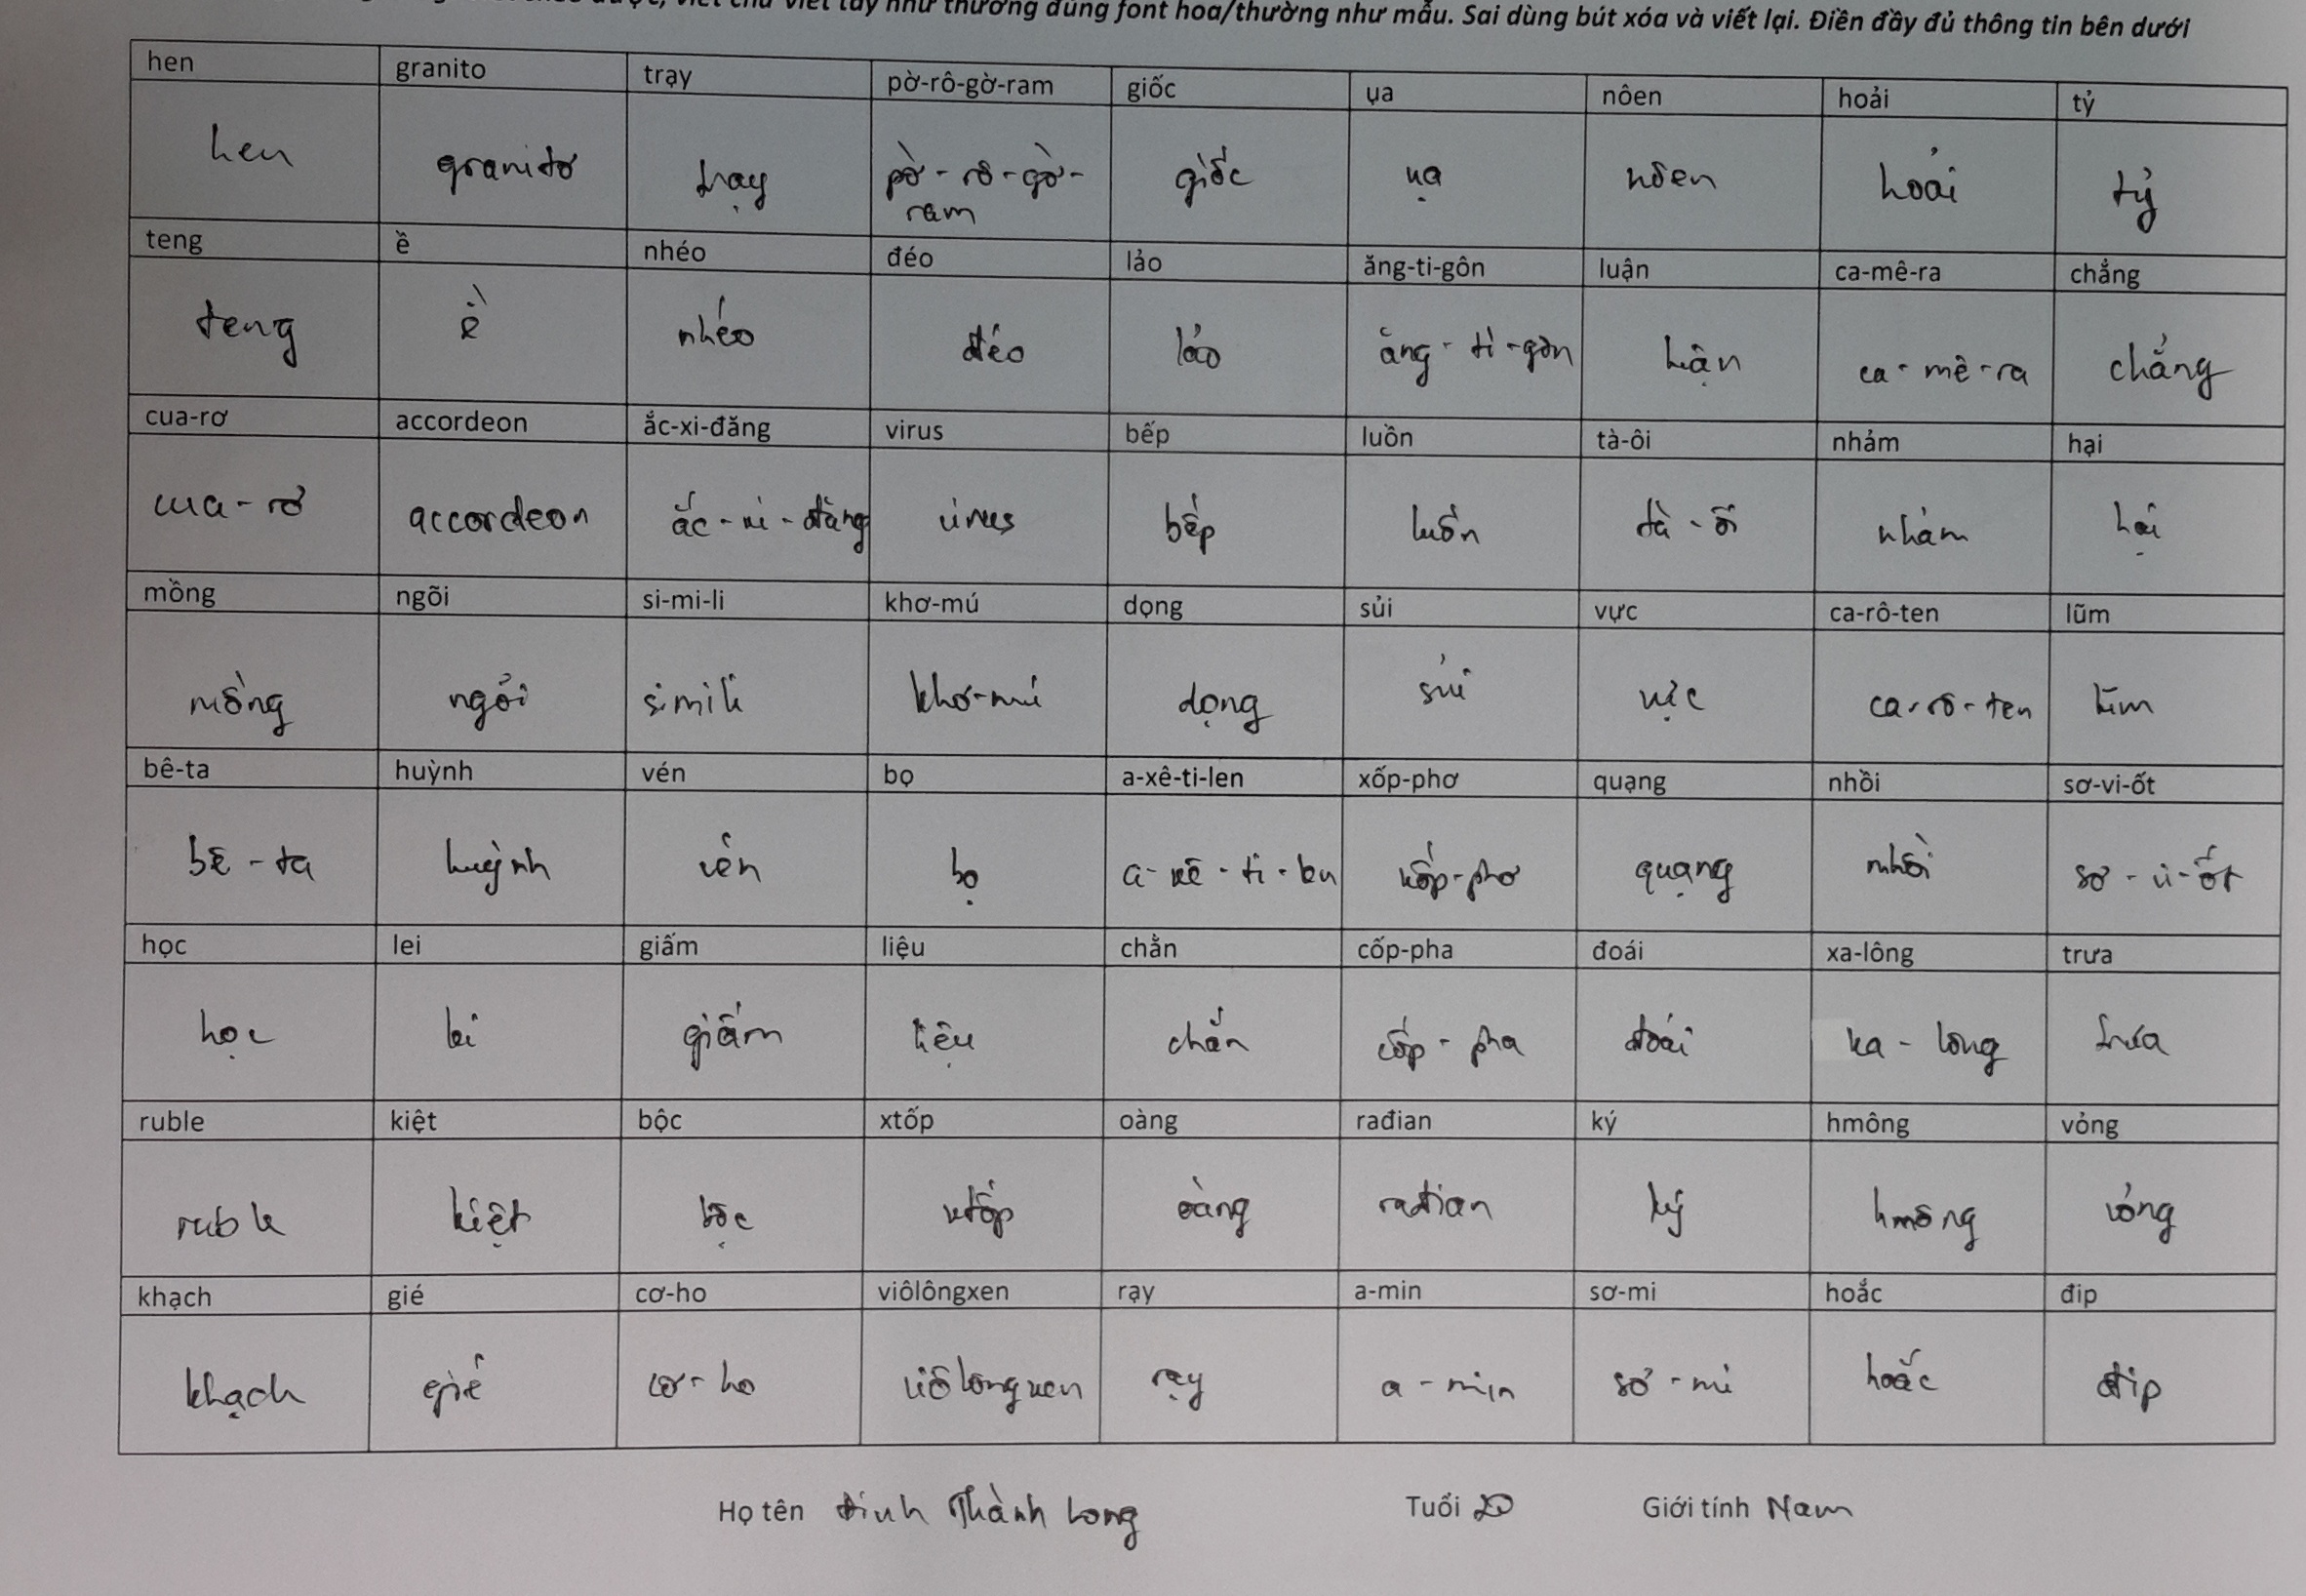 viết chữ viết tay như thường đúng font hoa/thường như mẫu. Sai dùng bút xóa và viết lại. Điền đầy đủ thông tin bên dưới
hen granito trạy pờ-rô-gờ-ram giốc ụa nôen hoải tỷ
hen granito trạy pờ-rô-gờ- giốc ụa nôen hoải tỷ
ram
teng ề nhéo đéo lảo ăng-ti-gôn luận ca-mê-ra chẳng
teng ề nhéo đéo lảo ăng-ti-gôn luận ca-mê-ra chẳng
cua-rơ accordeon ắc-xi-đăng virus bếp luồn tà-ôi nhảm hại
cua-rơ accordeon ắc-xi-đăng virus bếp luồn tà-ôi nhảm hại
mồng ngõi si-mi-li khơ-mú dọng sủi vực ca-rô-ten lũm
mồng ngõi simili khơ-mú dọng sủi vực ca-rô-ten lũm
bê-ta huỳnh vén bọ a-xê-ti-len xốp-phơ quạng nhồi sơ-vi-ốt
bê-ta huỳnh vén bọ a-xê-ti-len xốp-phơ quạng nhồi sơ-vi-ốt
học lei giấm liệu chằn cốp-pha đoái xa-lông trưa
học lei giấm liệu chằn cốp-pha đoái xa-lông trưa
ruble kiệt bộc xtốp oàng rađian ký hmông vỏng
ruble kiệt bộc xtốp oàng rađian ký hmông vỏng
khạch gié cơ-ho viôlôngxen rạy a-min sơ-mi hoắc đip
khạch gié cơ-ho viôlôngxen rạy a-min sơ-mi hoắc đip
Họ tên Đinh Thành Long Tuổi 20 Giới tính Nam